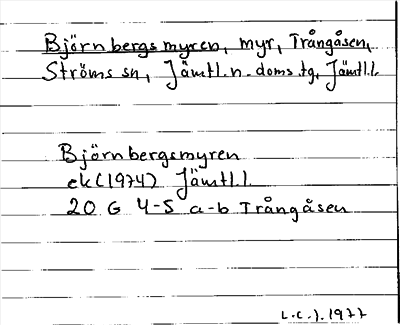 Björnbergsmyren, myr, Trångåsen,
Ströms sn, Jämtl. n. doms.tg, Jämtl.l.
Björnbergsmyren
ek (1974) Jämtl.l.
20 G 4-5 a-b Trångåsen
L.C.J. 1977